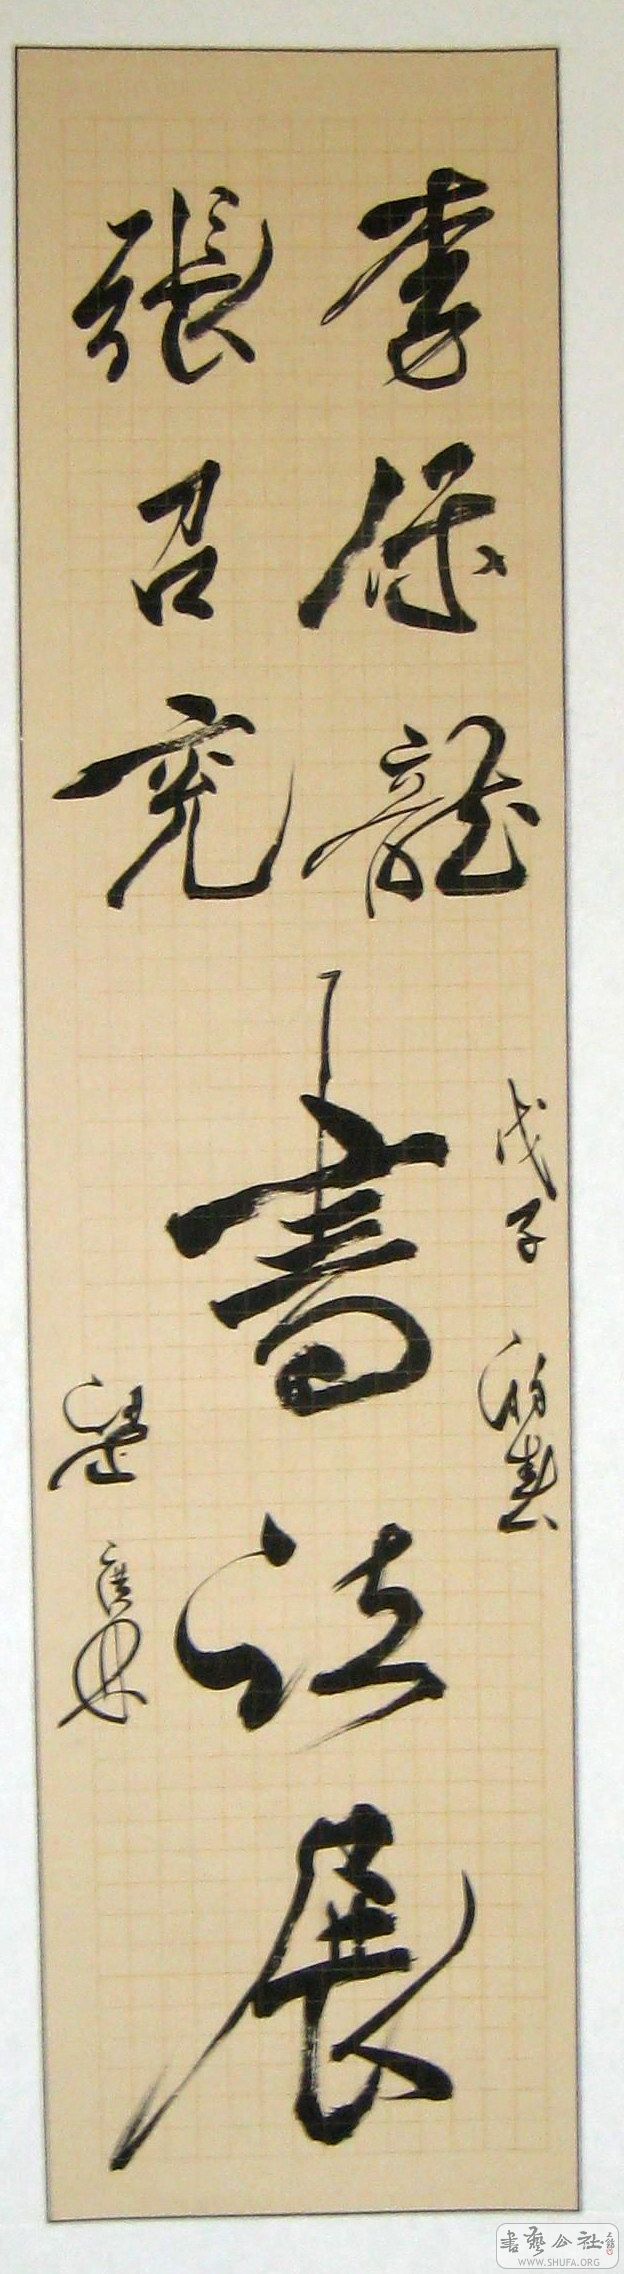 李保龍
張召亮
書法展
戊子初春
書藝公社
WWW.SHUFA.ORG